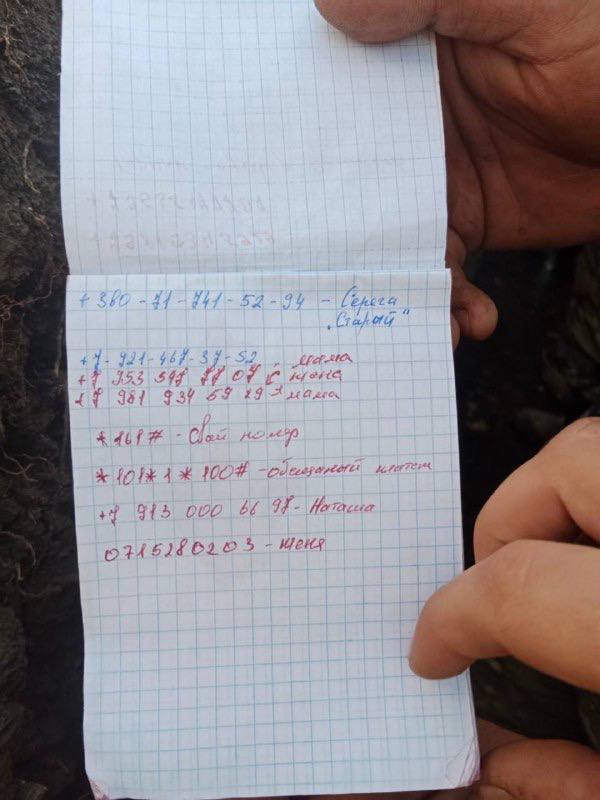 +380-71-741-52-94 - Серега
„Старый"
+7-921-467-37-52 - мама
+7 953 597 77 07 - жена
+7 981 934 59 29 - мама
*161# - Свой номер
*101*1*100# - обещаный платеж
+7 913 000 66 97 - Наташа
0715280203 - Женя